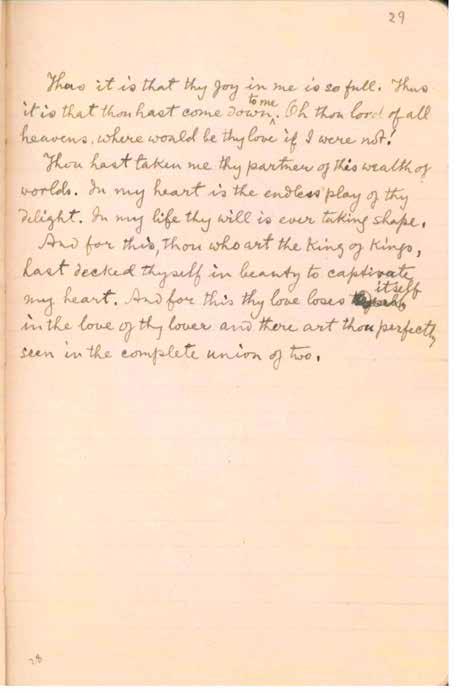 29
Thus it is that thy joy in me is so full. Thus
to me
it is that thou hast come down ^. Oh thou lord of all
heavens, where would be thy love if I were not!
Thou hast taken me thy partner of this wealth of
worlds. In my heart is the endless play of thy
delight. In my life thy will is ever taking shape.
And for this, thou who art the King of Kings,
hast decked thyself in beauty to captivate
itself
my heart. And for this thy love loses
in the love of thy lover and there art thou perfectly
seen in the complete union of two.
28